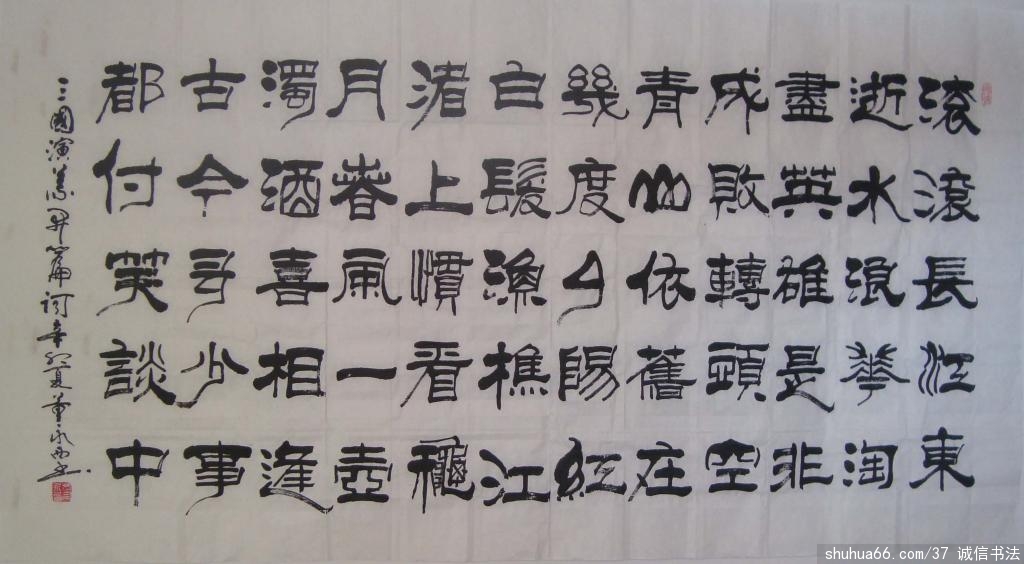 滚滾長江東
逝水浪華淘
盡英雄是非
成敗轉頭空
青山依舊在
幾度夕陽紅
白髮漁樵江
渚上慣看龝
月春風一壺
濁酒喜相逢
古今多少事
都付笑談中
三國演義開篇詞辛卯夏
shuhua66.com/37 诚信书法